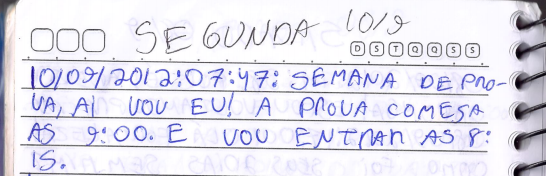 SEGUNDA 10/9
D S T Q Q S S
10/09/2012: 07:47: SEMANA DE PRO-
VA, AI VOU EU! A PROVA COMESA
AS 9:00. E VOU ENTRAR AS 8:
15.